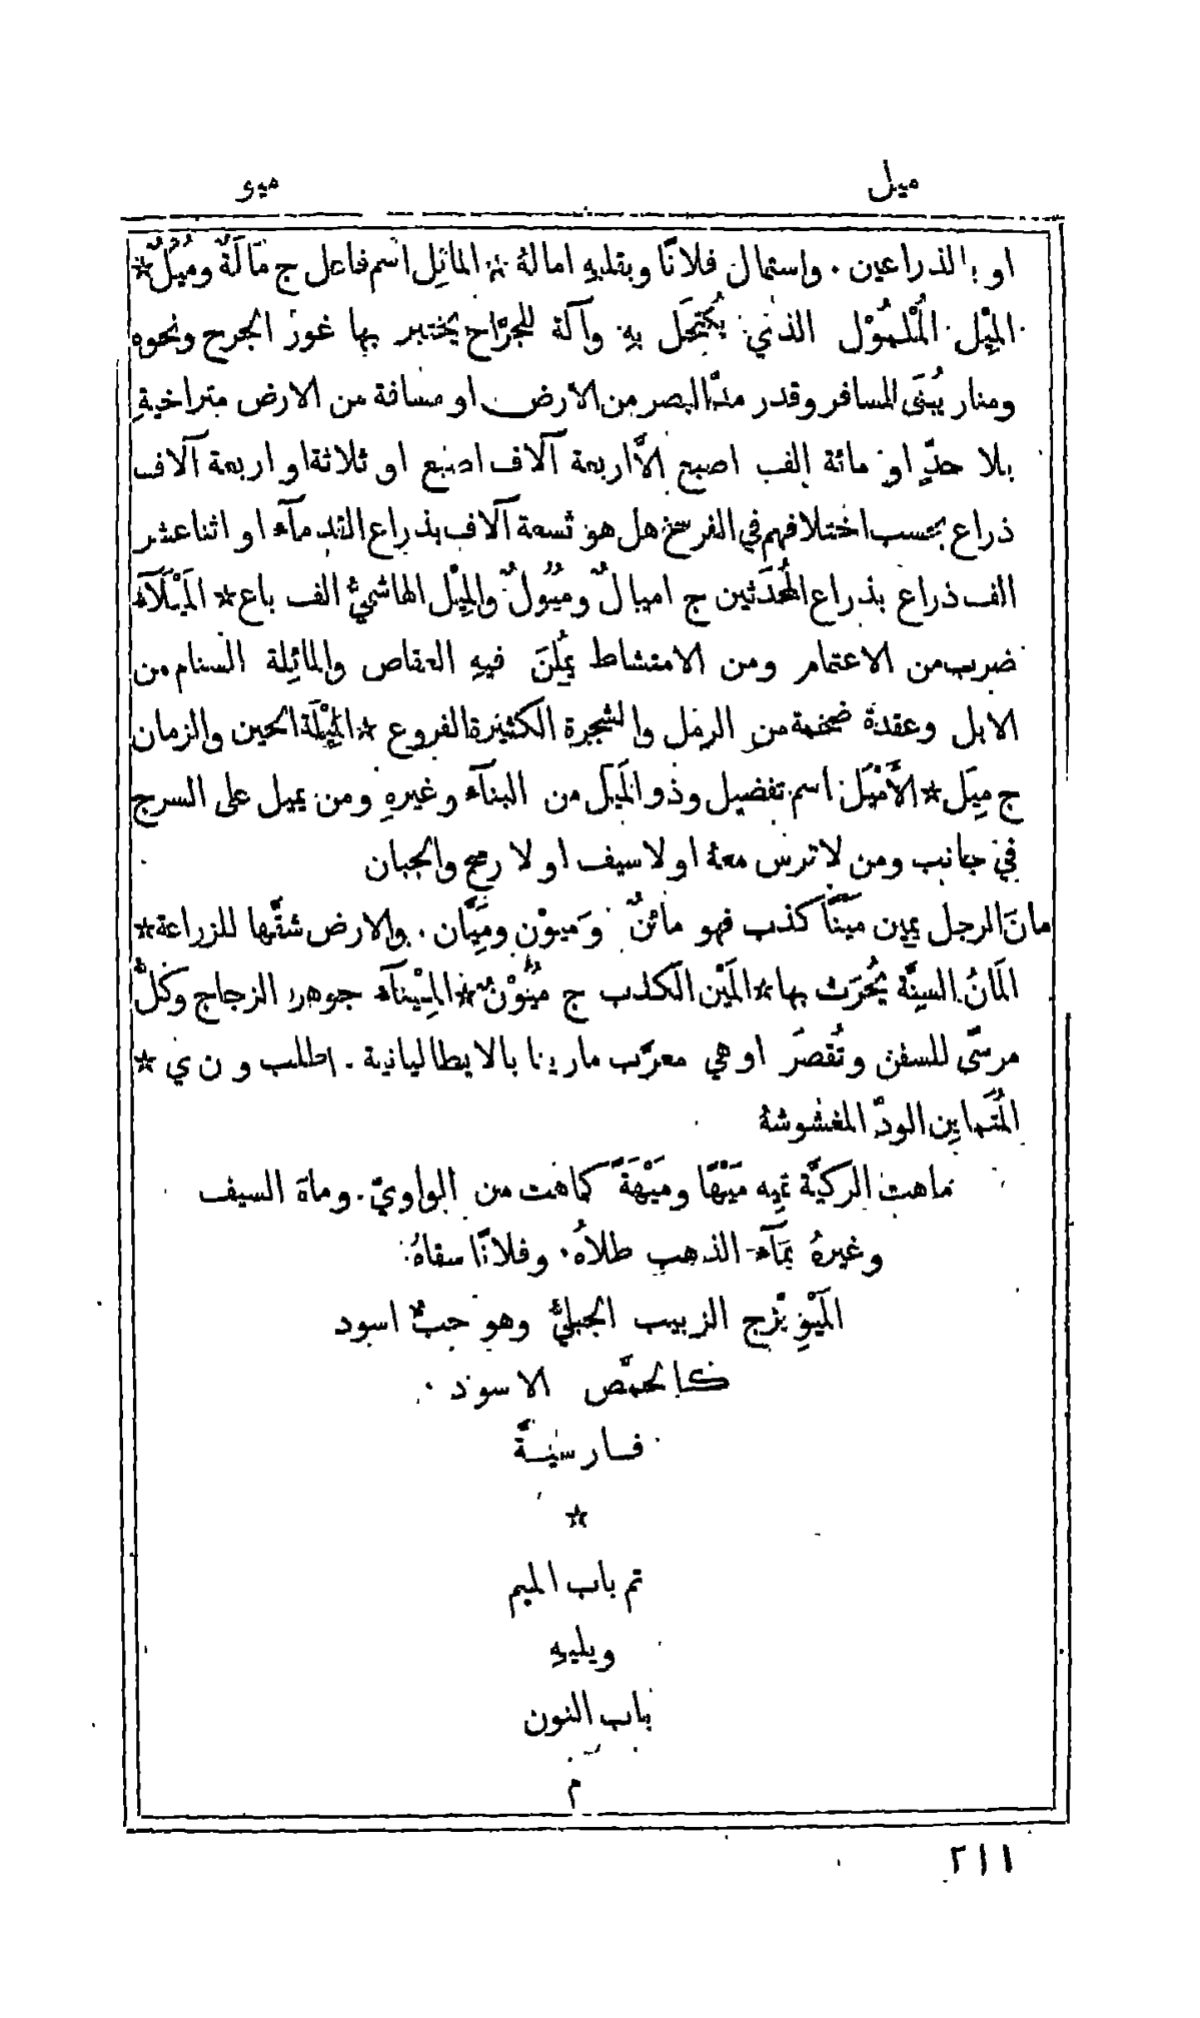 ميل
ميو
او بالذراعين . واستمال فلانًا وبقلبهِ امالهُ * المائِل اسم فاعل ج مَالَةٌ ومُيَّلٌ *
المِيْل المُلْمُوْل الذي يُكتَحَل بهِ وآلة للجرَّاح يختبر بها غور الجرح ونحوهِ
ومنار يُبنَى للمسافر وقدر مدّ البصر من الارض او مسافة من الارض متراخيةٍ
بلا حدٍّ او مائة الف اصبع الَّا اربعة آلاف اصبع او ثلاثة او اربعة آلاف
ذراع بحسب اختلافهم في الفرسخ هل هو تسعة آلاف بذراع القدمآء او اثنا عشر
الف ذراع بذراع المُحْدَثين ج اميالٌ ومُيُولٌ والمِيْل الهاشميُّ الف باع * المَيْلَآء
ضرب من الاعتمام ومن الامتشاط يُمِلْنَ فيهِ العقاص والمائِلة السنام من
الابل وعقدة ضخمة من الرمل والشجرة الكثيرة الفروع * المِيْلَة الحين والزمان
ج مِيَل * الأَمْيَل اسم تفضيل وذو المَيَل من البنآء وغيرهِ ومن يميل على السرج
في جانب ومن لا ترس معهُ او لا سيف او لا رمح والجبان
مانَ الرجل يمين مَيْنًا كذب فهو مائنٌ ومَيوْن ومَيَّان . والارض شقَّها للزراعة *
المَانُ السِنَّة يُحْرَث بها * المَيْن الكذب ج مُيُوْنٌ * المِيْنآء جوهر الزجاج وكلُّ
مرسًى للسفن وتُقصَر او هي معرَّب مارينا بالايطاليانية . اطلب و ن ي *
المُتَماين الودّ المغشوشهُ
ماهت الركيَّة تَمِيه مَيْهًا ومَيْهَةً كماهت من الواويّ . وماهَ السيف
وغيرهُ بمَآء الذهب طلاهُ . وفلانًا سقاهُ
المَيْوِيْزَج الزبيب الجبليُّ وهو حبٌّ اسود
كالحمَّص الاسود .
فارسيَّة
*
تم باب الميم
ويليهِ
باب النون
م
٢١١